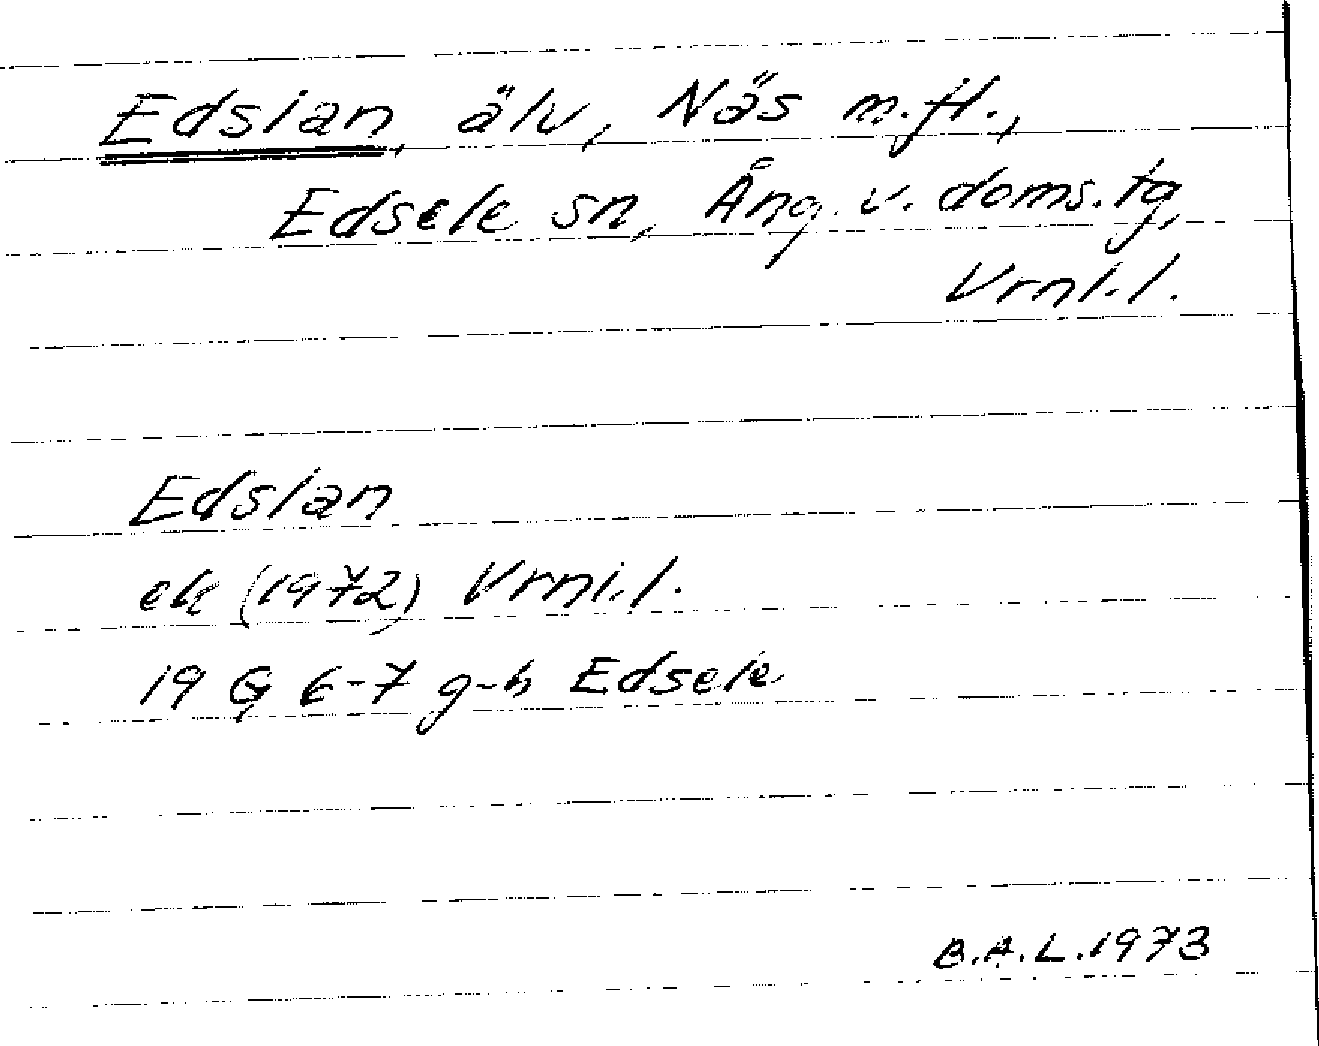 Edslan, älv, Näs m.fl.,
Edsele sn, Ång. v. doms.tg,
Vrnl.l.
Edslan
ek (1972) Vrnl.l.
19 G 6-7 g-h Edsele
B.A.L. 1973